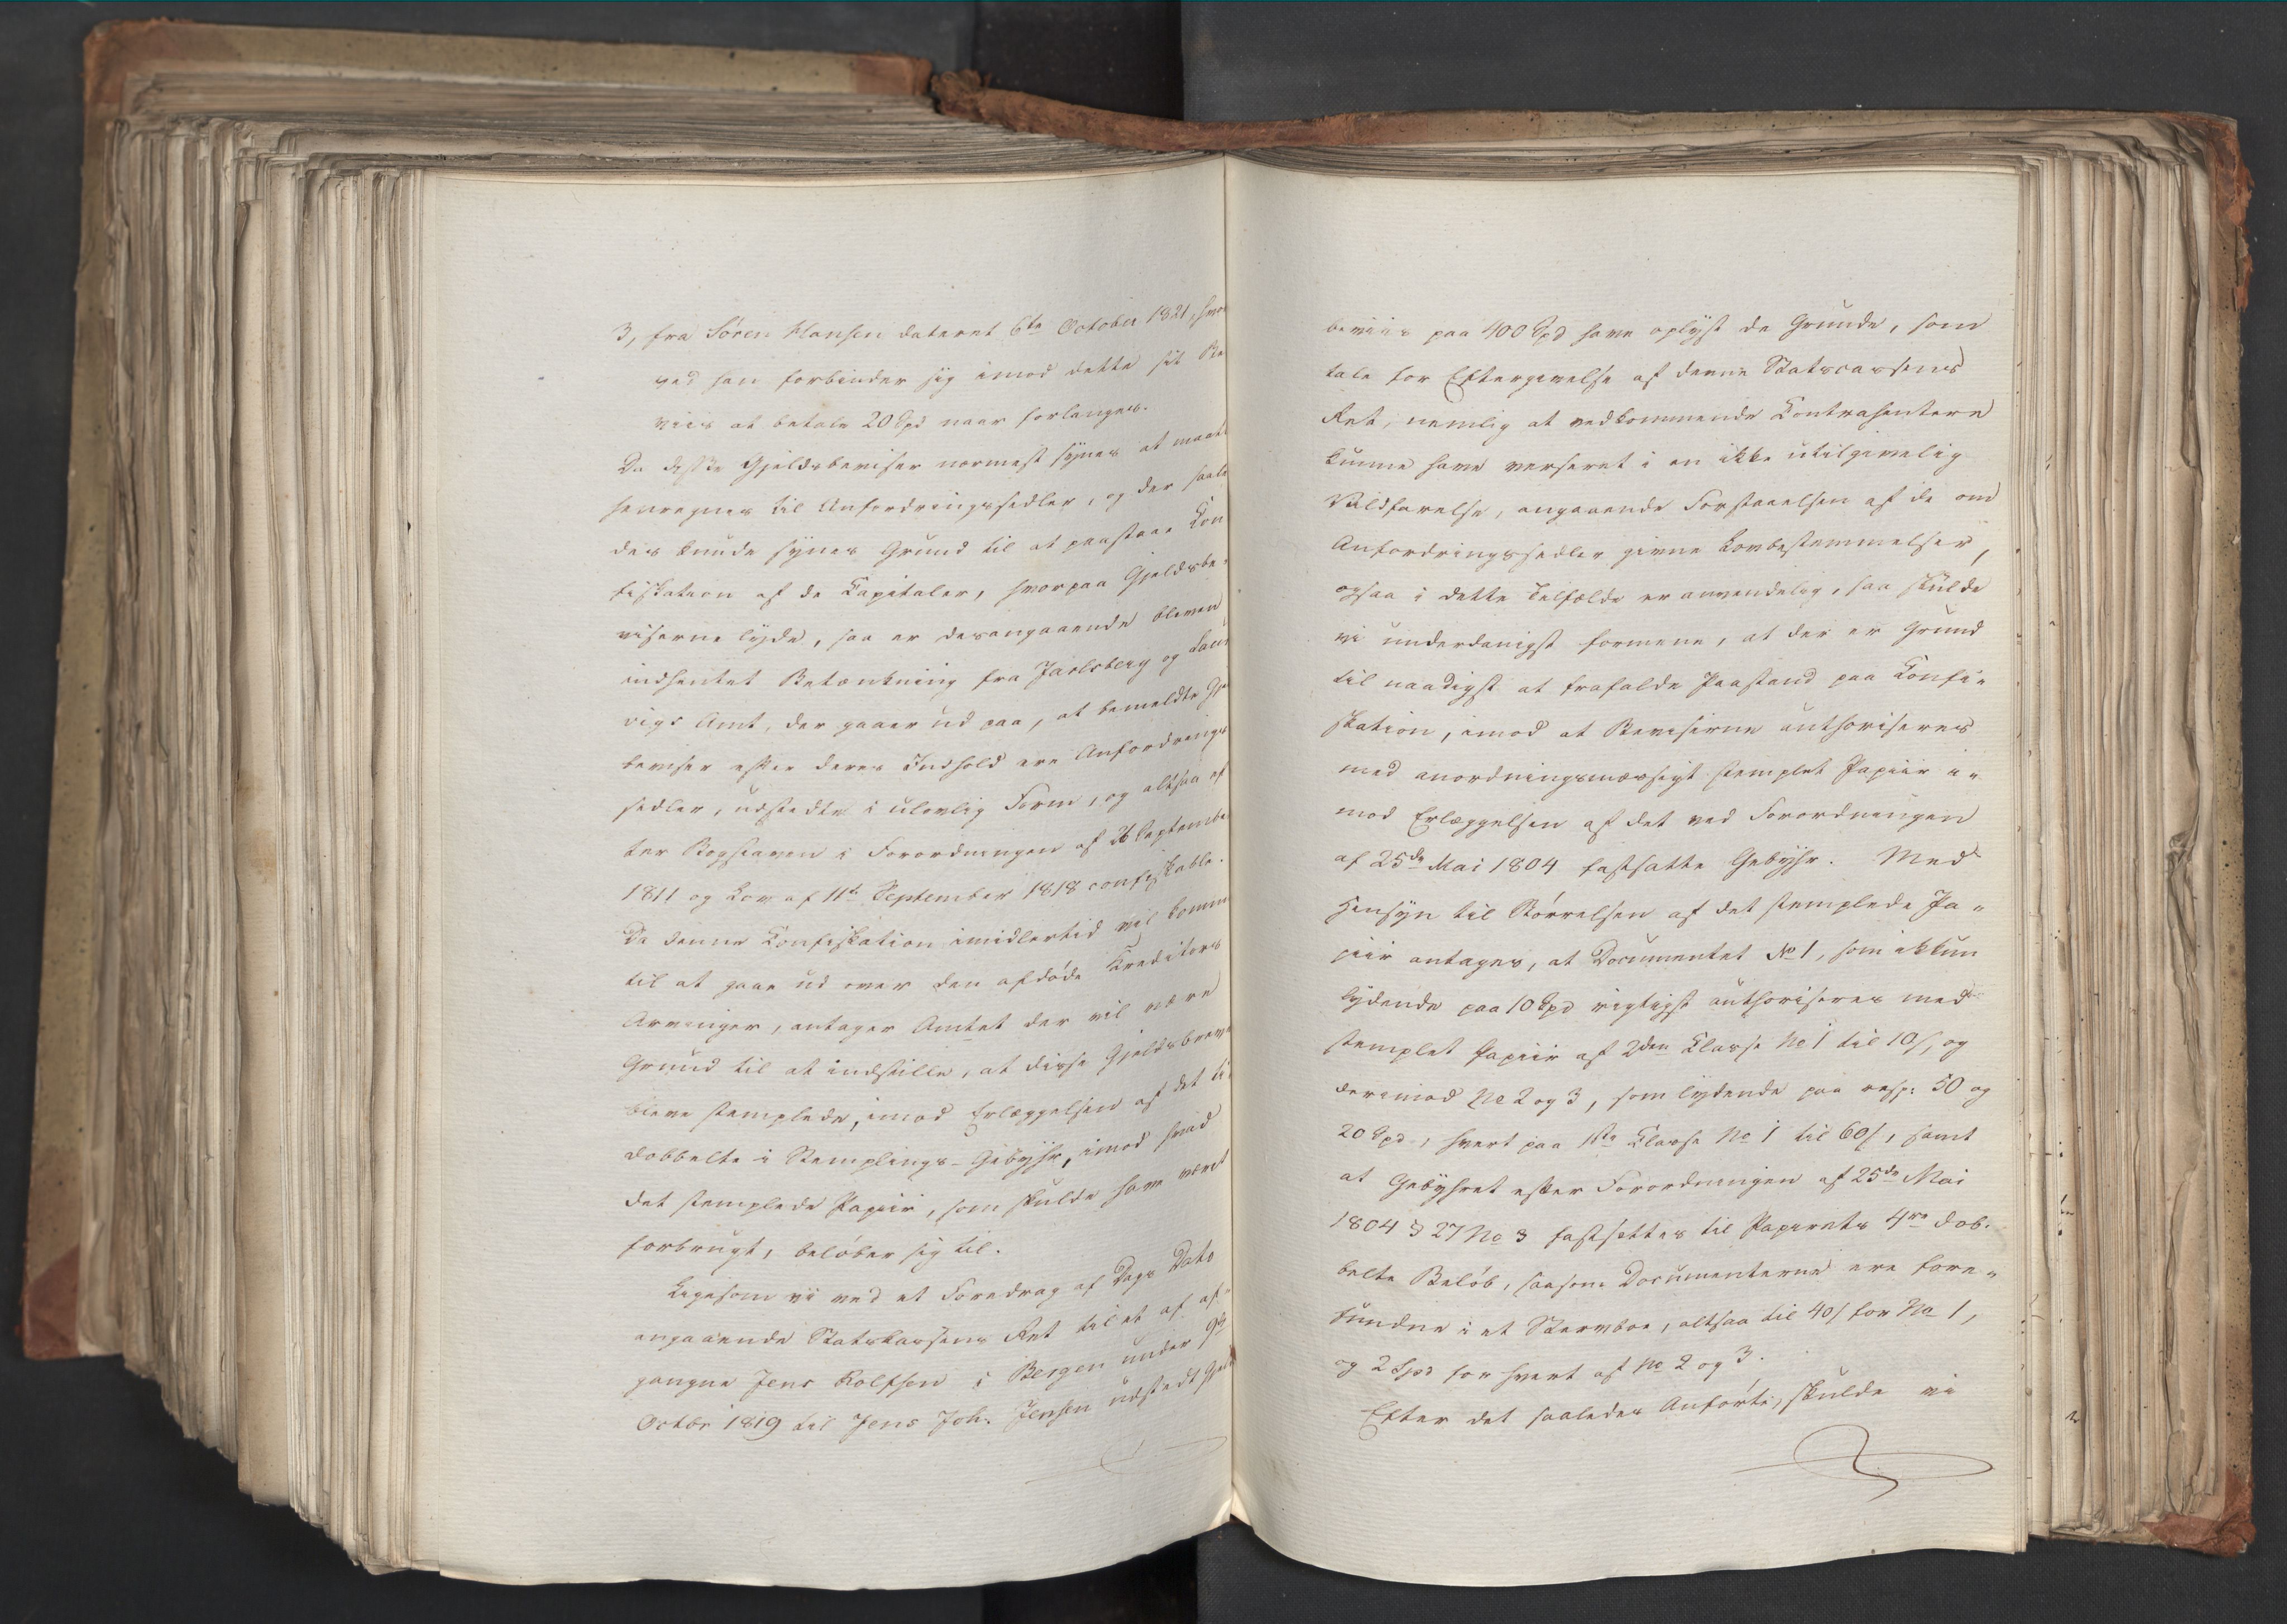 3, fra Sören Hansen dateret 6te October 1821, hvor
ved han forbinder sig imod dette sit Be
viis at betale 20 Spd naar forlanges.
Da disse Gjeldsbeviser nærmest synes at maatte
henregnes til Anfordringssedler, og der saale
des kunde synes Grund til at paastaae Kon
fiskation af de Kapitaler, hvorpaa Gjeldsbe-
viserne lyde, saa er desangaaende bleven
indhentet Betænkning fra Jarlsberg og Laur
vigs Amt, der gaaer ud paa, at bemeldte Gje
beviser efter deres Indhold ere Anfordrings
sedler, udstedte i ulovlig Form, og altsaa ef
ter Bogstaven i Forordningen af 26 Septembe
1811 og Lov af 11te September 1818 confiskable.
Da denne Konfiskation imidlertid vil komm
til at gaae ud over den afdöde Kreditors
Arvinger, antager Amtet der vil være
Grund til at indstille, at disse Gjeldsbreve
bleve stemplede, imod Erlæggelsen af det
dobbelte i Stemplings-Gebyhr, imod hvad
det stemplede Papiir, som skulde have været
forbrugt, belöber sig til.
Ligesom vi ved et Foredrag af Dags Dato
angaaende Statskassens Ret til et af af-
gangne Jens Rolfsen i Bergen under 9de
Octbr 1819 til Jens Joh. Jensen udstedt Gjel
beviis paa 400 Spd have oplyst de Grunde, som
tale for Eftergivelse af denne Statscassens
Ret, nemlig at vedkommende Contrahentere
kunne have verseret i en ikke utilgivelig
Vildfarelse, angaaende Forstaaelsen af de om
Anfordringssedler givne Lovbestemmelser,
ogsaa i dette Tilfælde er anvendelig, saa skulde
vi underdanigst formene, at der er Grund
til naadigst at frafalde Paastand paa Konfi-
skation, imod at Beviserne authoriseres
med anordningsmæssigt stemplet Papiir i-
mod Erlæggelsen af det ved Forordningen
af 25de Mai 1804 fastsatte Gebyhr. Med
Hensyn til Störrelsen af det stemplede Pa-
piir antages, at Documentet No 1, som ikkun
lydende paa 10 Spd rigtigst authoriseres med
stemplet Papiir af 2den Classe No 1 til 10 s, og
derimod No 2 og 3, som lydende paa resp: 50 og
20 Spd, hvert paa 1ste Classe No 1 til 60 s, samt
at Gebyhret efter Forordningen af 25de Mai
1804 § 27 No 3 fastsættes til Papirets 4re dob-
belte Belöb, saasom Documenterne ere fore-
fundne i et Sterboe, altsaa til 40 s for No 1,
og 2 Spd for hvert af No 2 og 3.
Efter det saaledes Anförte, skulde vi